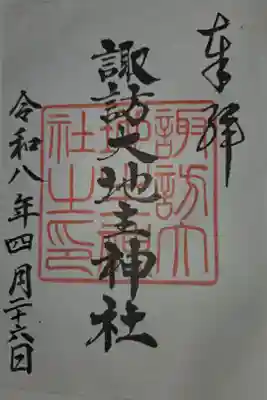 奉拝
諏訪大地主神社
令和八年四月二十六日
諏訪大
社之印